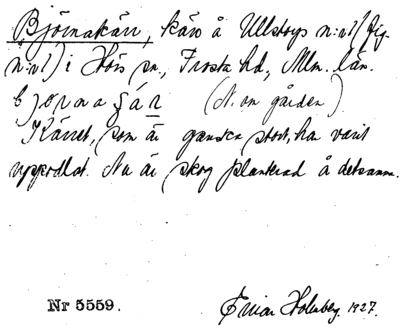 Björnakärr, kärr å Ullstorps n:o 1 (fig.
n:o 1) i Hörs sn., Frosta hd., Mlm. län.
(N. om gården)
Kärret, som är ganska stort, har varit
uppodlat. Nu är skog planterad å detsamma.
Nr 5559.
Einar Holmberg. 1927.